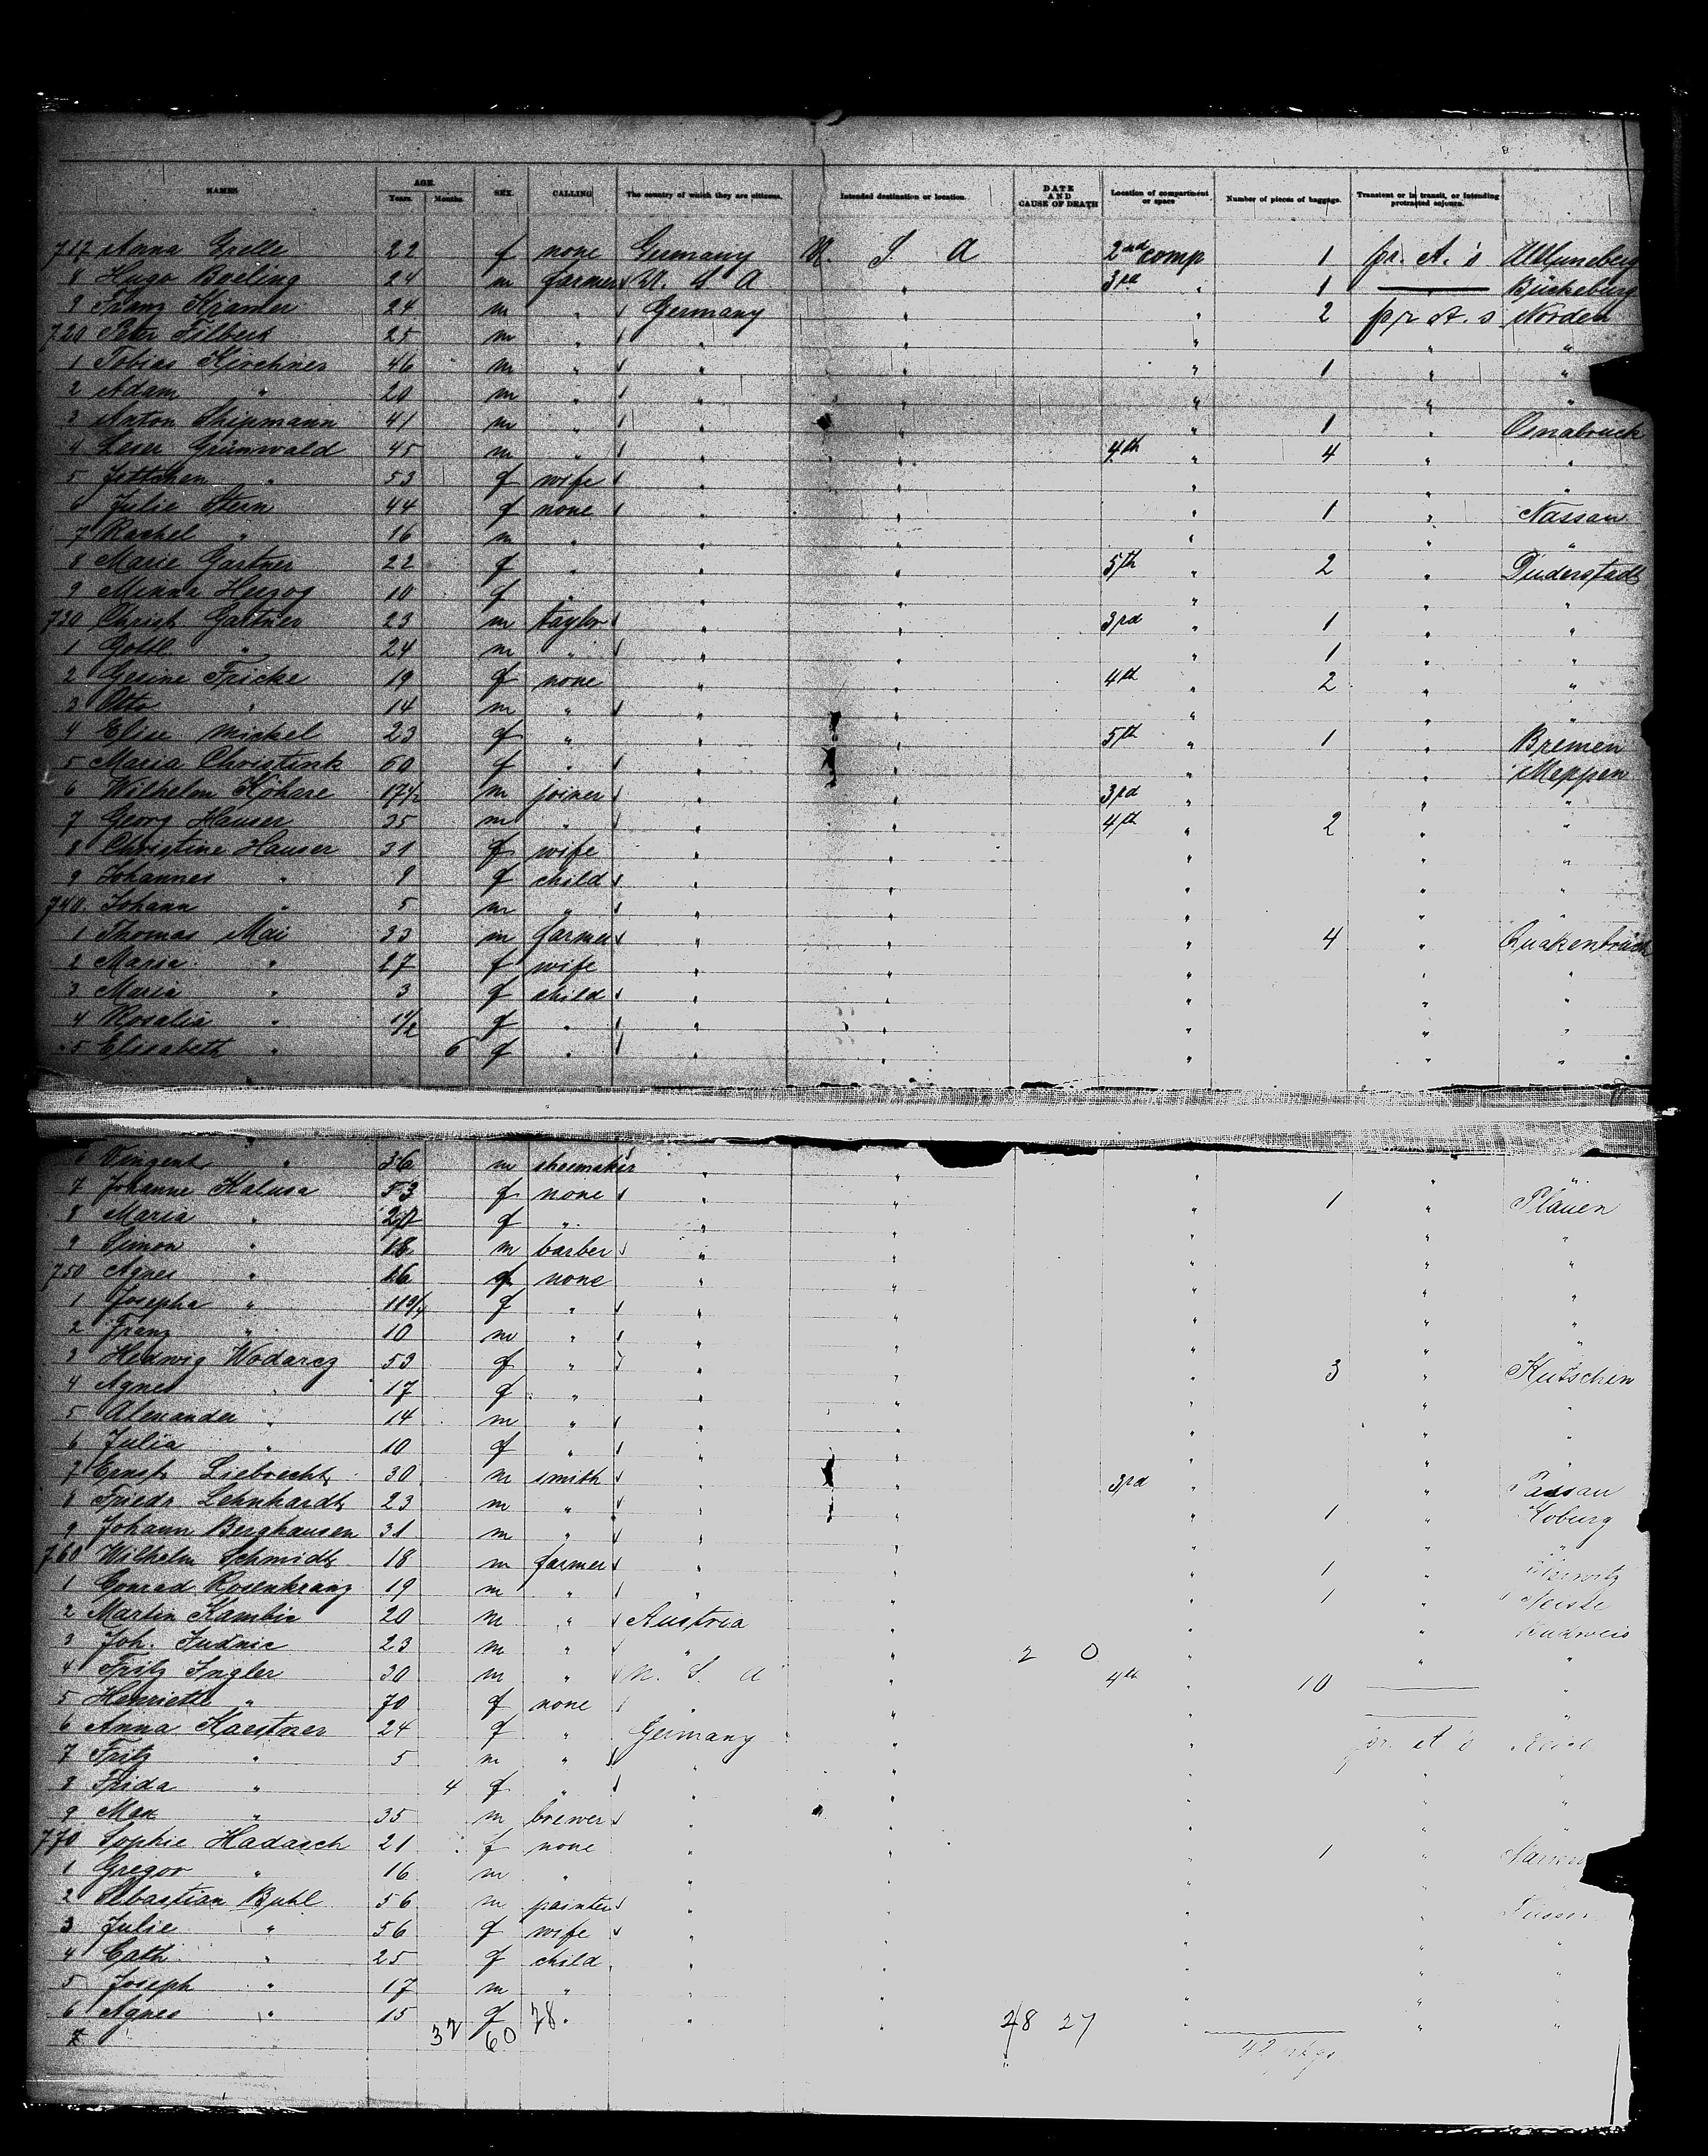 NAMES AGE. Years. Months. SEX. CALLING The country of which they are citizens. Intended destination or location. DATE AND CAUSE OF DEATH Location of compartment or space Number of pieces of baggage. Transient or in transit, or intending protracted sojourn.
717 Anna Grelle 22 f none Germany U. S A 2nd comp 1 pr. A. s
8 Hugo Boeling 24 m farmer U. S A " 3rd " 1 Bückeburg
9 Franz Kramer 24 m " Germany " " 2 pr A. s Norden
720 Peter Filbert 25 m " " " " " "
1 Tobias Kirchner 46 m " " " " 1 " "
2 Adam " 20 m " " " " " "
3 Anton Shipmann 41 m " " " " 1 " Osnabruck
4 Leser Grünwald 45 m " " " 4th " 4 " "
5 Jettchen " 53 f wife " " " " "
6 Julie Stern 44 f none " " " 1 " Nassau
7 Rachel " 16 m " " " " " "
8 Marie Gartner 22 f " " " 5th " 2 " Duderstadt
9 Minna Herzog 10 f " " " " " "
730 Christ. Gartner 23 m taylor " " 3rd " 1 " "
1 Gottl " 24 m " " " " 1 " "
2 Gesine Fricke 19 f none " " 4th " 2 " "
3 Otto " 14 m " " " " " "
4 Elise Mickel 23 f " " " 5th " 1 " Bremen
5 Maria Christink 60 f " " " " " Meppen
6 Wilhelm Kohase 17 1/2 m joiner " " 3rd " " "
7 Georg Hauser 35 m " " " 4th " 2 " "
8 Christine Hauser 31 f wife " " " " "
9 Johannes " 9 f child " " " " "
740. Johann " 5 m " " " " " "
1 Thomas Mai 33 m farmer " " " 4 " Quakenbrück
2 Maria " 27 f wife " " " " "
3 Maria " 3 f child " " " " "
4 Rosalia " 1 1/2 f " " " " " "
5 Elisabeth " 6 f " " " " " "
6 Vingent " 36 m shoemaker " " " " "
7 Johanne Kalusa 53 f none " " " 1 " Plauen
8 Maria " 20 f " " " " " "
9 Simon " 18 m barber " " " " "
750 Agnes " 16 f none " " " " "
1 Josepha " 11 3/4 f " " " " " "
2 Franz " 10 m " " " " " "
3 Hedwig Wodarcz 53 f " " " " 3 " Kutschen
4 Agnes " 17 f " " " " " "
5 Alexander " 14 m " " " " " "
6 Julia " 10 f " " " " " "
7 Ernst Liebrecht 30 m smith " " 3rd " " Passau
8 Friedr Lehnhardt 23 m " " " " 1 " Koburg
9 Johann Berghausen 31 m " " " " " "
760 Wilhelm Schmidt 18 m farmer " " " 1 "
1 Conrad Rosenkranz 19 m " " " " 1 " Neisse
2 Martin Kambic 20 m " Austria " " " Budweis
3 Joh. Judnic 23 m " " " 2 0 " " "
4 Fritz Ingler 30 m " U. S. A " 4th " 10 "
5 Henriette " 70 f none " " " "
6 Anna Kaestner 24 f " Germany " " pr. A s
7 Fritz " 5 m " " " " " "
8 Frida " 4 f " " " " " "
9 Max " 35 m brewer " " " " "
770 Sophie Hadasch 21 f none " " " 1 "
1 Gregor " 16 m " " " " "
2 Sebastian Buhl 56 m painter " " " "
3 Julie " 56 f wife " " " " "
4 Cath " 25 f child " " " " "
5 Joseph " 17 m " " " " " "
6 Agnes " 15 f " " " " " "
7 32 60 28 48 27
42 pkgs